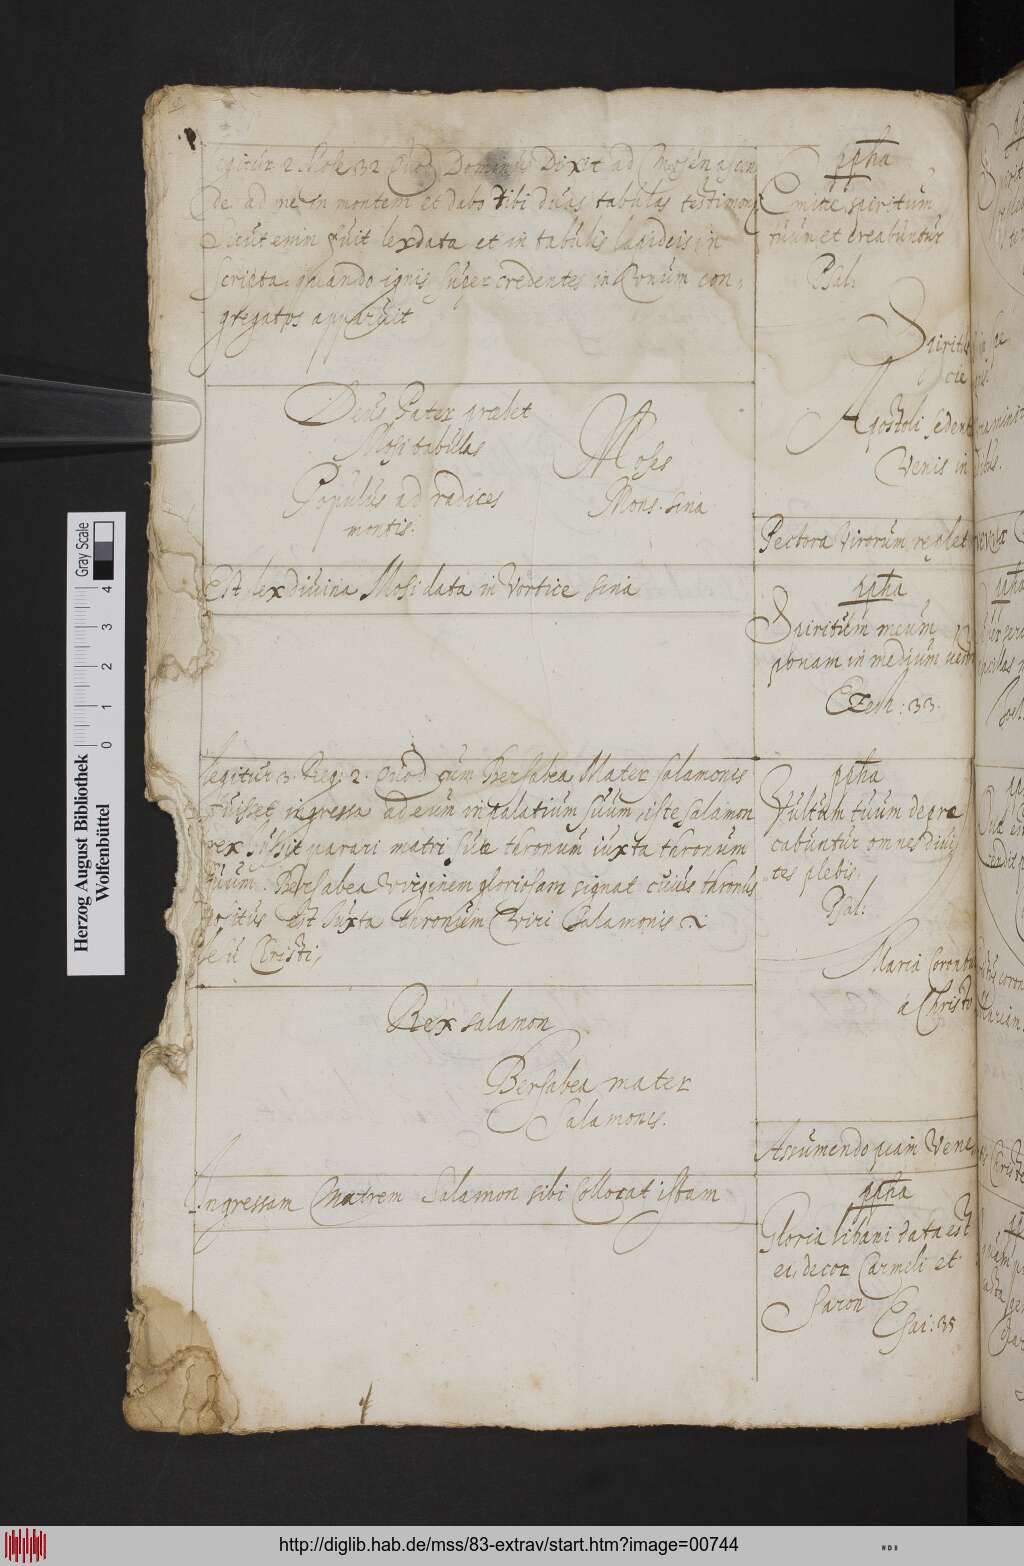 legitur 2 Mose 32 quod Dominus Dixit ad Mosen ascen
de ad me in montem et dabo tibi duas tabulas testimony
sicut enim fuit lex data et in tabulis lapideis in
scripta quando ignis super credentes in Conum con,
gregatos apparuit
Deus Pater præbet
Mosi tabulas
Populus ad radices
montis.
Moses
Mons. sina
Est lex divina Mosi data in Vortice sina
legitur 3. Reg: 2. quod cum Bersabea Mater Salamonis
fuisset ingressa ad eum in palatium suum, iste Salamon
rex jussit parari matri suæ thronum iuxta thronum
suum. Bersabea virginem gloriosam signat cuius thronus
positus est juxta thronum Viri Salamonis
Jesu Christi,
Rex salamon
Bersabea mater
Salamonis.
Ingressam Matrem Salamon sibi Collocat istam
ppha
Emitte spiritum
tuum et creabuntur
Psal:
Spiritus
cie
Apostoli sedent
Venis in
Pectora Virorum replet
ppha
Spiritum meum
ponam in medium
Ezech: 33.
ppha
Vultum tuum depræ
cabuntur omnes divi
tes plebis.
Psal:
Maria Coronatur
a Christo
Assumendo piam Vene
ppha
Gloria libani data est
ei, decor Carmeli et
Saron
Esai: 35
Herzog August Bibliothek
Wolfenbüttel
Gray Scale
0 1 2 3 4
http://diglib.hab.de/mss/83-extrav/start.htm?image=00744
WDB